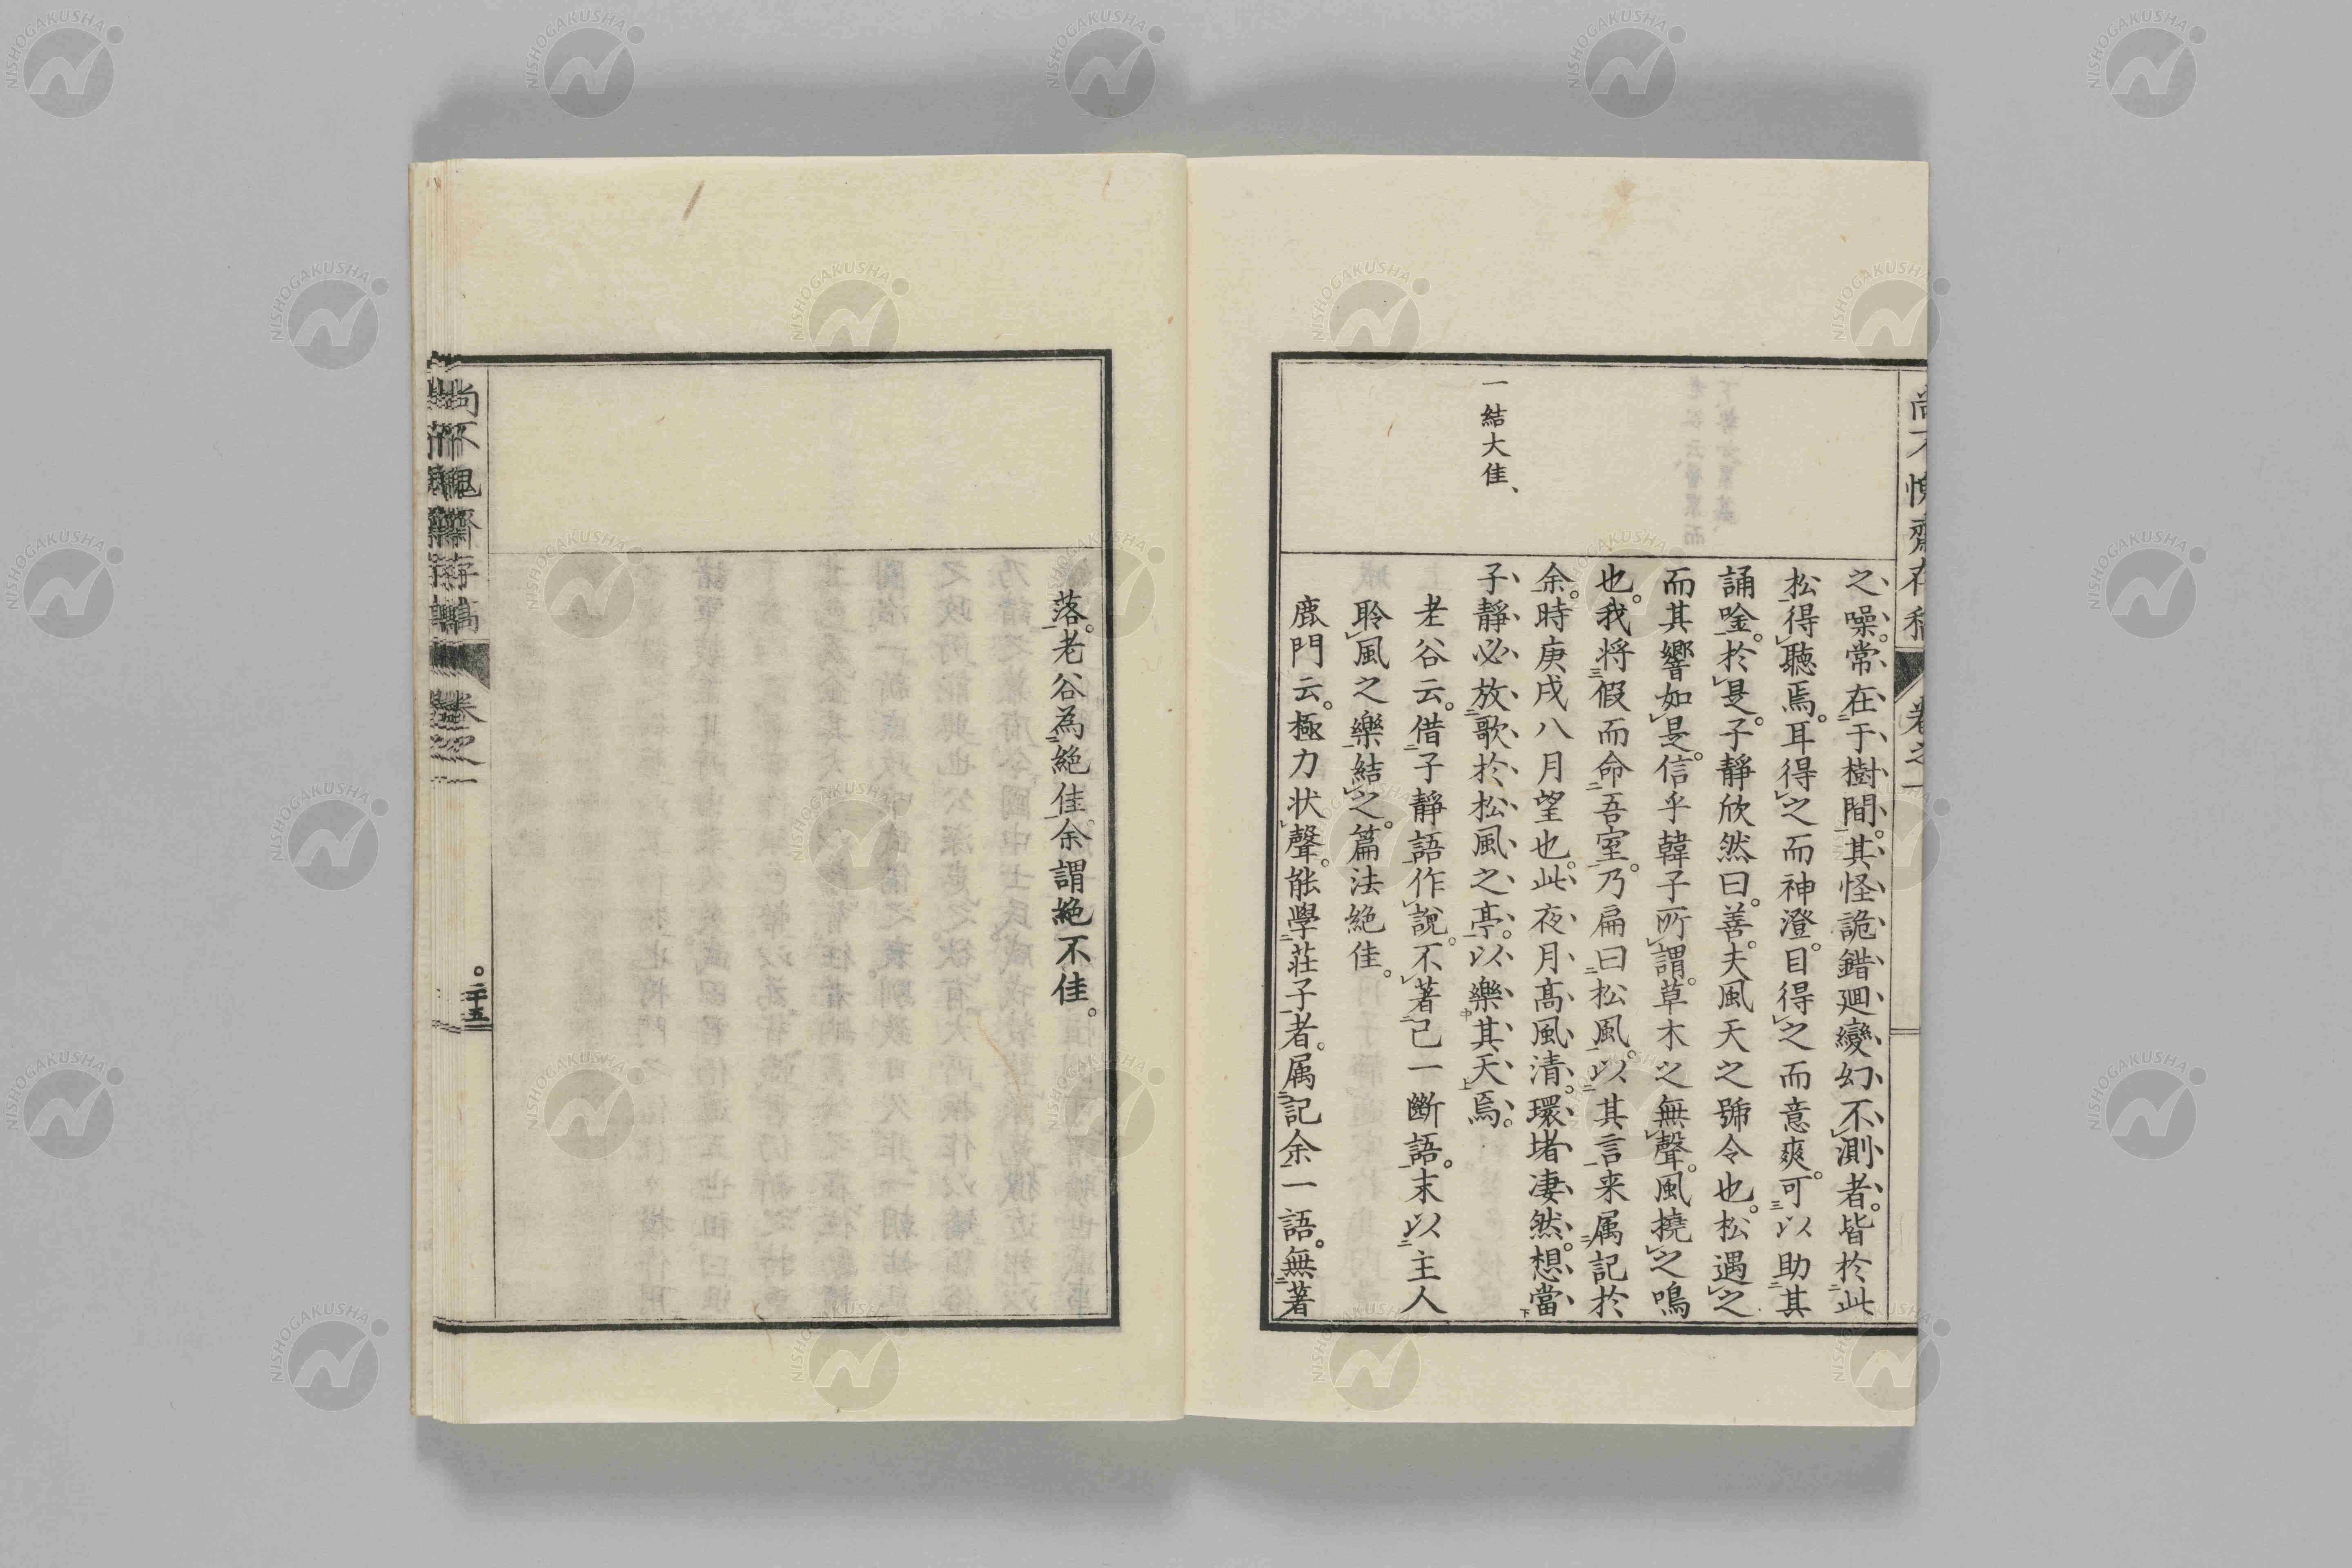 尚不愧齋存稿 卷之一
之噪。常在于樹間。其怪詭錯廻變幻不測者。皆於此
松得聽焉。耳得之而神澄。目得之而意爽。可以助其
誦唫。於是。子靜欣然曰。善。夫風天之號令也。松遇之
而其響如是。信乎韓子所謂。草木之無聲。風撓之鳴
也。我將假而命吾室。乃扁曰松風。以其言来属記於
余。時庚戌八月望也。此夜月高風清。環堵凄然。想當
子靜必放歌於松風之亭。以樂其天焉。
一結大佳、
老谷云。借子靜語作說。不著己一斷語。末以主人
聆風之樂結之。篇法絶佳。
鹿門云。極力状聲。能學莊子者。属記余一語。無著
落。老谷為絶佳。余謂絶不佳。
尚不愧齋存稿 卷之一
二十五
NISHOGAKUSHA